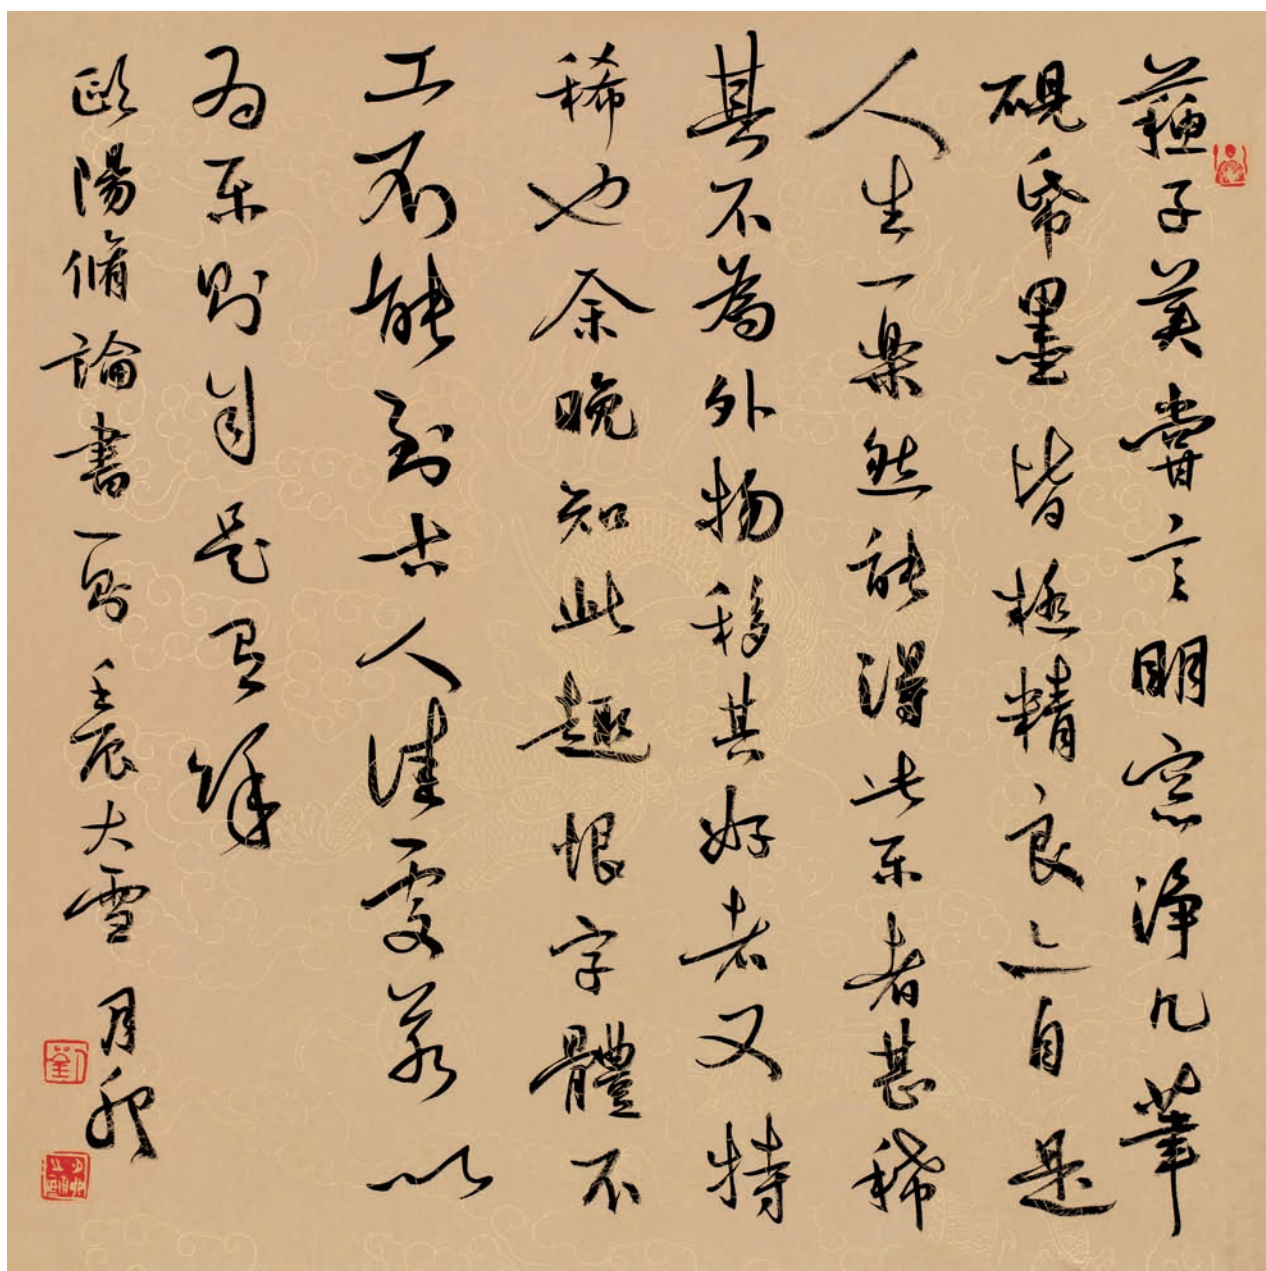 蘇子美嘗言明窓淨几筆
硯帋墨皆極精良亦自是
人生一樂然能得此樂者甚稀
其不為外物移其好者又特
稀也余晚知此趣恨字體不
工不能到古人佳處若以
為樂則自是有餘
歐陽脩論書一則壬辰大雪月秋